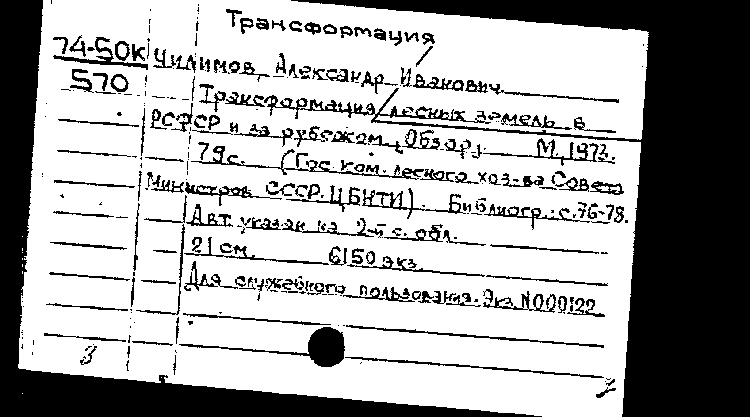 Трансформация
74-50к Чилимов, Александр Иванович.
570 Трансформация лесных земель в
РСФСР и за рубежом. (Обзор). М., 1973.
79 с. (Гос. ком. лесного хоз-ва Совета
Министров СССР. ЦБНТИ). Библиогр.: с. 76-78.
Авт. указан на 2-й с. обл.
21 см. 6150 экз.
Для служебного пользования. Экз. N000122
3